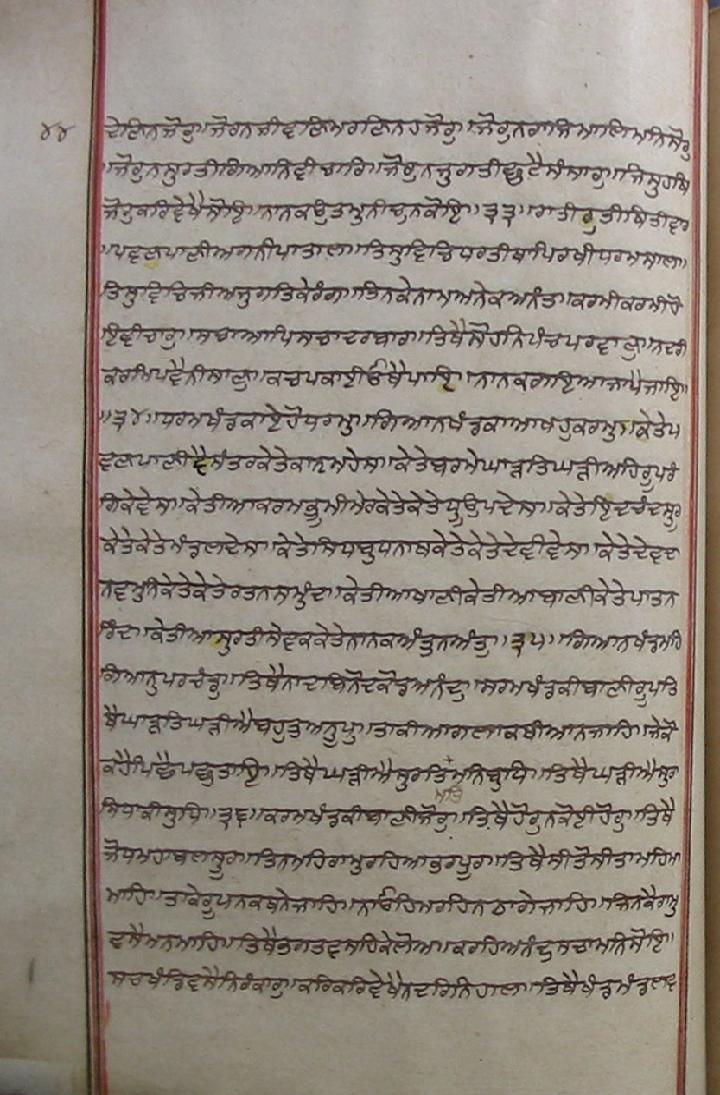 ੪੪
ਦੇਣਿਨਜੋਰੁ॥ਜੋਰਨਜੀਵਣਿਮਰਣਿਨਹਜੋਰੁ॥ਜੋਰੁਨਰਾਜਿਮਾਲਿਮਨਿਸੋਰੁ
॥ਜੋਰੁਨਸੁਰਤੀਗਿਆਨਿਵੀਚਾਰਿ॥ਜੋਰੁਨਜੁਗਤੀਛੁਟੈਸੰਸਾਰੁ॥ਜਿਸੁਹਥਿ
ਜੋਰੁਕਰਿਵੇਖੈਸੋਇ॥ਨਾਨਕਉਤਮੁਨੀਚੁਨਕੋਇ॥੩੩॥ਰਾਤੀਰੁਤੀਥਿਤੀਵਾਰ
॥ਪਵਣਪਾਣੀਅਗਨੀਪਾਤਾਲ॥ਤਿਸੁਵਿਚਿਧਰਤੀਥਾਪਿਰਖੀਧਰਮਸਾਲ॥
ਤਿਸੁਵਿਚਿਜੀਅਜੁਗਤਿਕੇਰੰਗ॥ਤਿਨਕੇਨਾਮਅਨੇਕਅਨੰਤ॥ਕਰਮੀਕਰਮੀਹੋ
ਇਵੀਚਾਰੁ॥ਸਚਾਆਪਿਸਚਾਦਰਬਾਰੁ॥ਤਿਥੈਸੋਹਨਿਪੰਚਪਰਵਾਣੁ॥ਨਦਰੀ
ਕਰਮਿਪਵੈਨੀਸਾਣੁ॥ਕਚਪਕਾਈਓਥੈਪਾਇ॥ਨਾਨਕਗਇਆਜਾਪੈਜਾਇ॥
॥੩੪॥ਧਰਮਖੰਡਕਾਏਹੋਧਰਮੁ॥ਗਿਆਨਖੰਡਕਾਆਖਹੁਕਰਮੁ॥ਕੇਤੇਪ
ਵਣਪਾਣੀਵੈਸੰਤਰਕੇਤੇਕਾਨਮਹੇਸ॥ਕੇਤੇਬਰਮੇਘਾੜਤਿਘੜੀਅਹਿਰੂਪਰੰ
ਗਿਕੇਵੇਸ॥ਕੇਤੀਆਕਰਮਭੂਮੀਮੇਰਕੇਤੇਕੇਤੇਧੂਉਪਦੇਸ॥ਕੇਤੇਇੰਦਚੰਦਸੂਰ
ਕੇਤੇਕੇਤੇਮੰਡਲਦੇਸ॥ਕੇਤੇਸਿਧਬੁਧਨਾਥਕੇਤੇਕੇਤੇਦੇਵੀਵੇਸ॥ਕੇਤੇਦੇਵਦਾ
ਨਵਮੁਨਿਕੇਤੇਕੇਤੇਰਤਨਸਮੁੰਦ॥ਕੇਤੀਆਖਾਣੀਕੇਤੀਆਬਾਣੀਕੇਤੇਪਾਤਨ
ਰਿੰਦ॥ਕੇਤੀਆਸੁਰਤੀਸੇਵਕਕੇਤੇਨਾਨਕਅੰਤੁਨਅੰਤੁ॥੩੫॥ਗਿਆਨਖੰਡਮਹਿ
ਗਿਆਨੁਪਰਚੰਡੁ॥ਤਿਥੈਨਾਦਬਿਨੋਦਕੋਡਅਨੰਦੁ॥ਸਰਮਖੰਡਕੀਬਾਣੀਰੂਪਤਿ
ਥੈਘਾੜਤਿਘੜੀਐਬਹੁਤੁਅਨੂਪੁ॥ਤਾਕੀਆਗਲਾਕਥੀਆਨਜਾਹਿ॥ਜੇਕੋ
ਕਹੈਪਿਛੈਪਛੁਤਾਇ॥ਤਿਥੈਘੜੀਐਸੁਰਤਿਮਨਿਬੁਧਿ॥ਤਿਥੈਘੜੀਐਸੁਰ
ਮਤਿ
ਸਿਧਾਕੀਸੁਧਿ॥੩੬॥ਕਰਮਖੰਡਕੀਬਾਣੀਜੋਰੁ॥ਤਿਥੈਹੋਰੁਨਕੋਈਹੋਰੁ॥ਤਿਥੈ
ਜੋਧਮਹਾਬਲਸੂਰ॥ਤਿਨਮਹਿਰਾਮੁਰਹਿਆਭਰਪੂਰ॥ਤਿਥੈਸੀਤੋਸੀਤਾਮਹਿਮਾ
ਮਾਹਿ॥ਤਾਕੇਰੂਪਨਕਥਨੇਜਾਹਿ॥ਨਾਓਹਿਮਰਹਿਨਠਾਗੇਜਾਹਿ॥ਜਿਨਕੈਰਾਮੁ
ਵਸੈਮਨਮਾਹਿ॥ਤਿਥੈਭਗਤਵਸਹਿਕੇਲੋਅ॥ਕਰਹਿਅਨੰਦੁਸਚਾਮਨਿਸੋਇ॥
ਸਚਖੰਡਿਵਸੈਨਿਰੰਕਾਰੁ॥ਕਰਿਕਰਿਵੇਖੈਨਦਰਿਨਿਹਾਲ॥ਤਿਥੈਖੰਡਮੰਡਲਵ